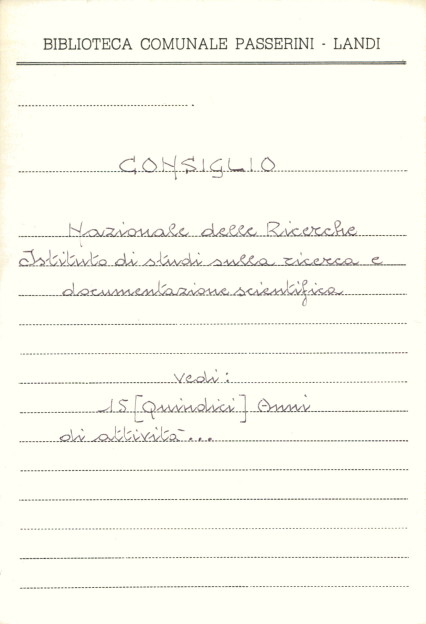 BIBLIOTECA COMUNALE PASSERINI - LANDI
CONSIGLIO
Nazionale delle Ricerche
Istituto di studi sulla ricerca e
documentazione scientifica
vedi:
15 [Quindici] Anni
di attività...